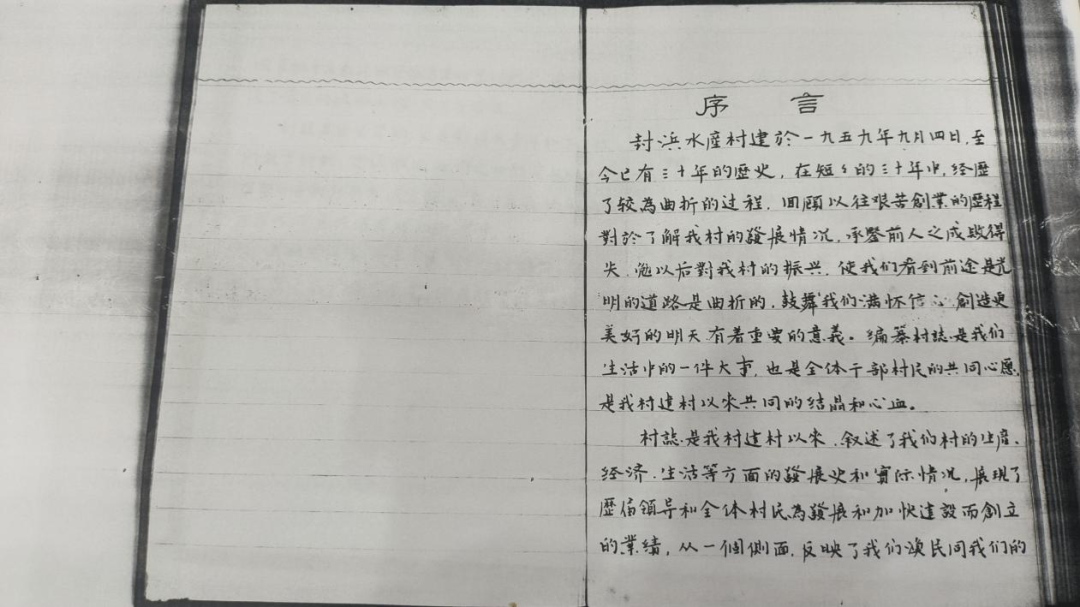 序 言
封浜水產村建於一九五九年九月四日，至
今已有三十年的歷史，在短々的三十年中，经歷
了较為曲折的过程，回顧以往艰苦創業的歷程
對於了解我村的發展情况，承鑒前人之成败得
失，勉以后對我村的振兴，使我们看到前途是光
明的道路是曲折的，鼓舞我们满怀信心創造更
美好的明天有着重要的意義。编纂村誌是我们
生活中的一件大事，也是全体干部村民的共同心愿，
是我村建村以来共同的结晶和心血。
村誌是我村建村以来，叙述了我们村的生產、
经济、生活等方面的發展史和實际情况，展现了
歷届領导和全体村民為發展和加快建設而創立
的業绩，从一個侧面，反映了我们渔民同我们的